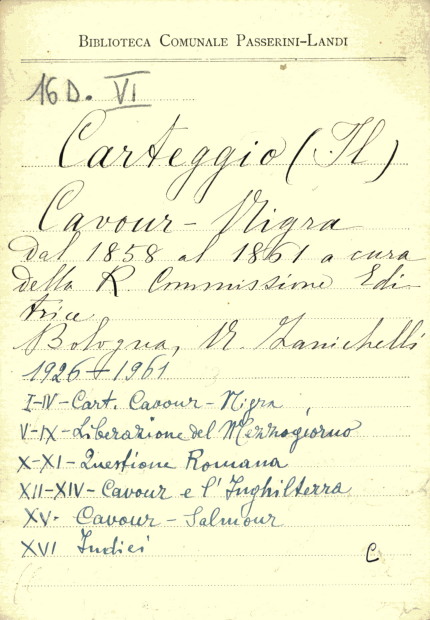 BIBLIOTECA COMUNALE PASSERINI-LANDI
16 D. VI
Carteggio (Il)
Cavour - Nigra
dal 1858 al 1861 a cura
della R. Commissione Edi-
trice
Bologna, N. Zanichelli
1926-1961
I-IV - Cart. Cavour - Nigra
V-IX - Liberazione del Mezzogiorno
X-XI - Questione Romana
XII-XIV - Cavour e l'Inghilterra
XV - Cavour - Salmour
XVI Indici
C